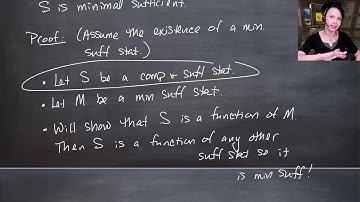 S is minimal sufficient.
Proof: (Assume the existence of a min.
suff stat.)
• Let S be a comp & suff stat.
• Let M be a min suff stat.
• Will show that S is a function of M.
Then S is a function of any other
suff stat so it
is min suff!